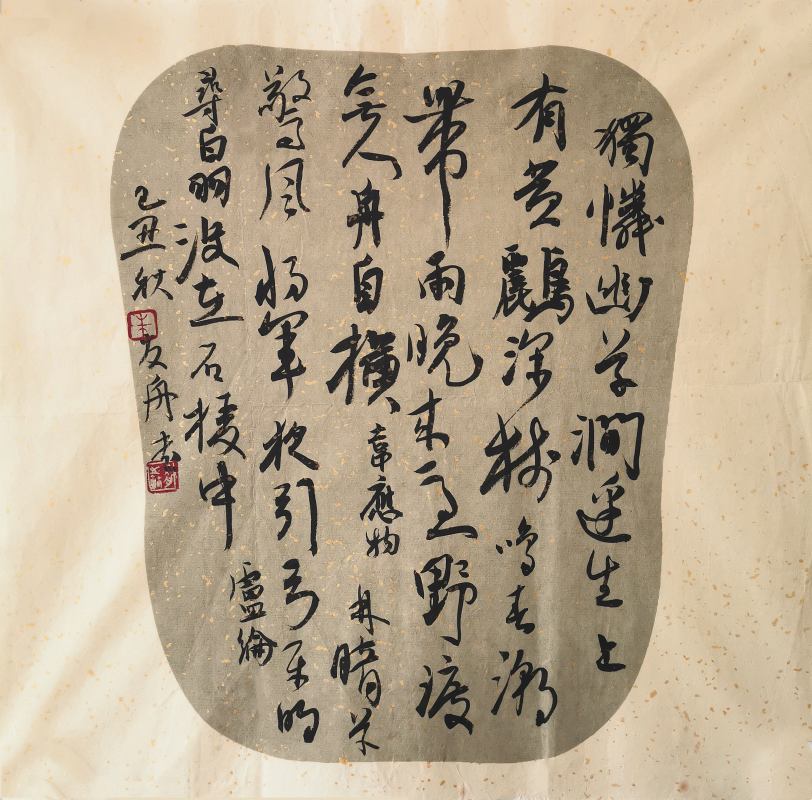 獨憐幽草澗邊生上
有黃鸝深樹鳴春潮
帶雨晚來急野渡
無人舟自橫 韋應物 林暗草
驚風將軍夜引弓平明
尋白羽沒在石棱中 盧綸
己丑秋 友舟書